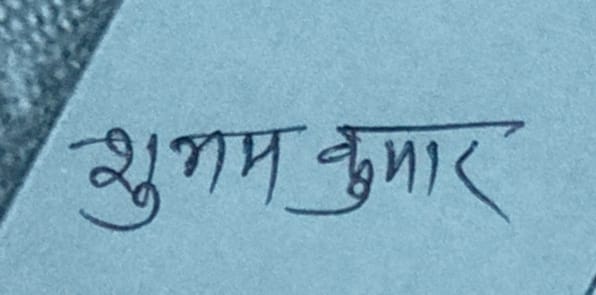 शुभम कुमार